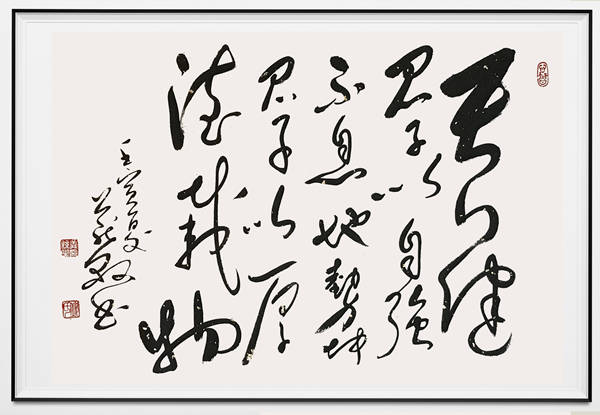 天行健
君子以自強
不息地勢坤
君子以厚
德載物
壬寅夏
书